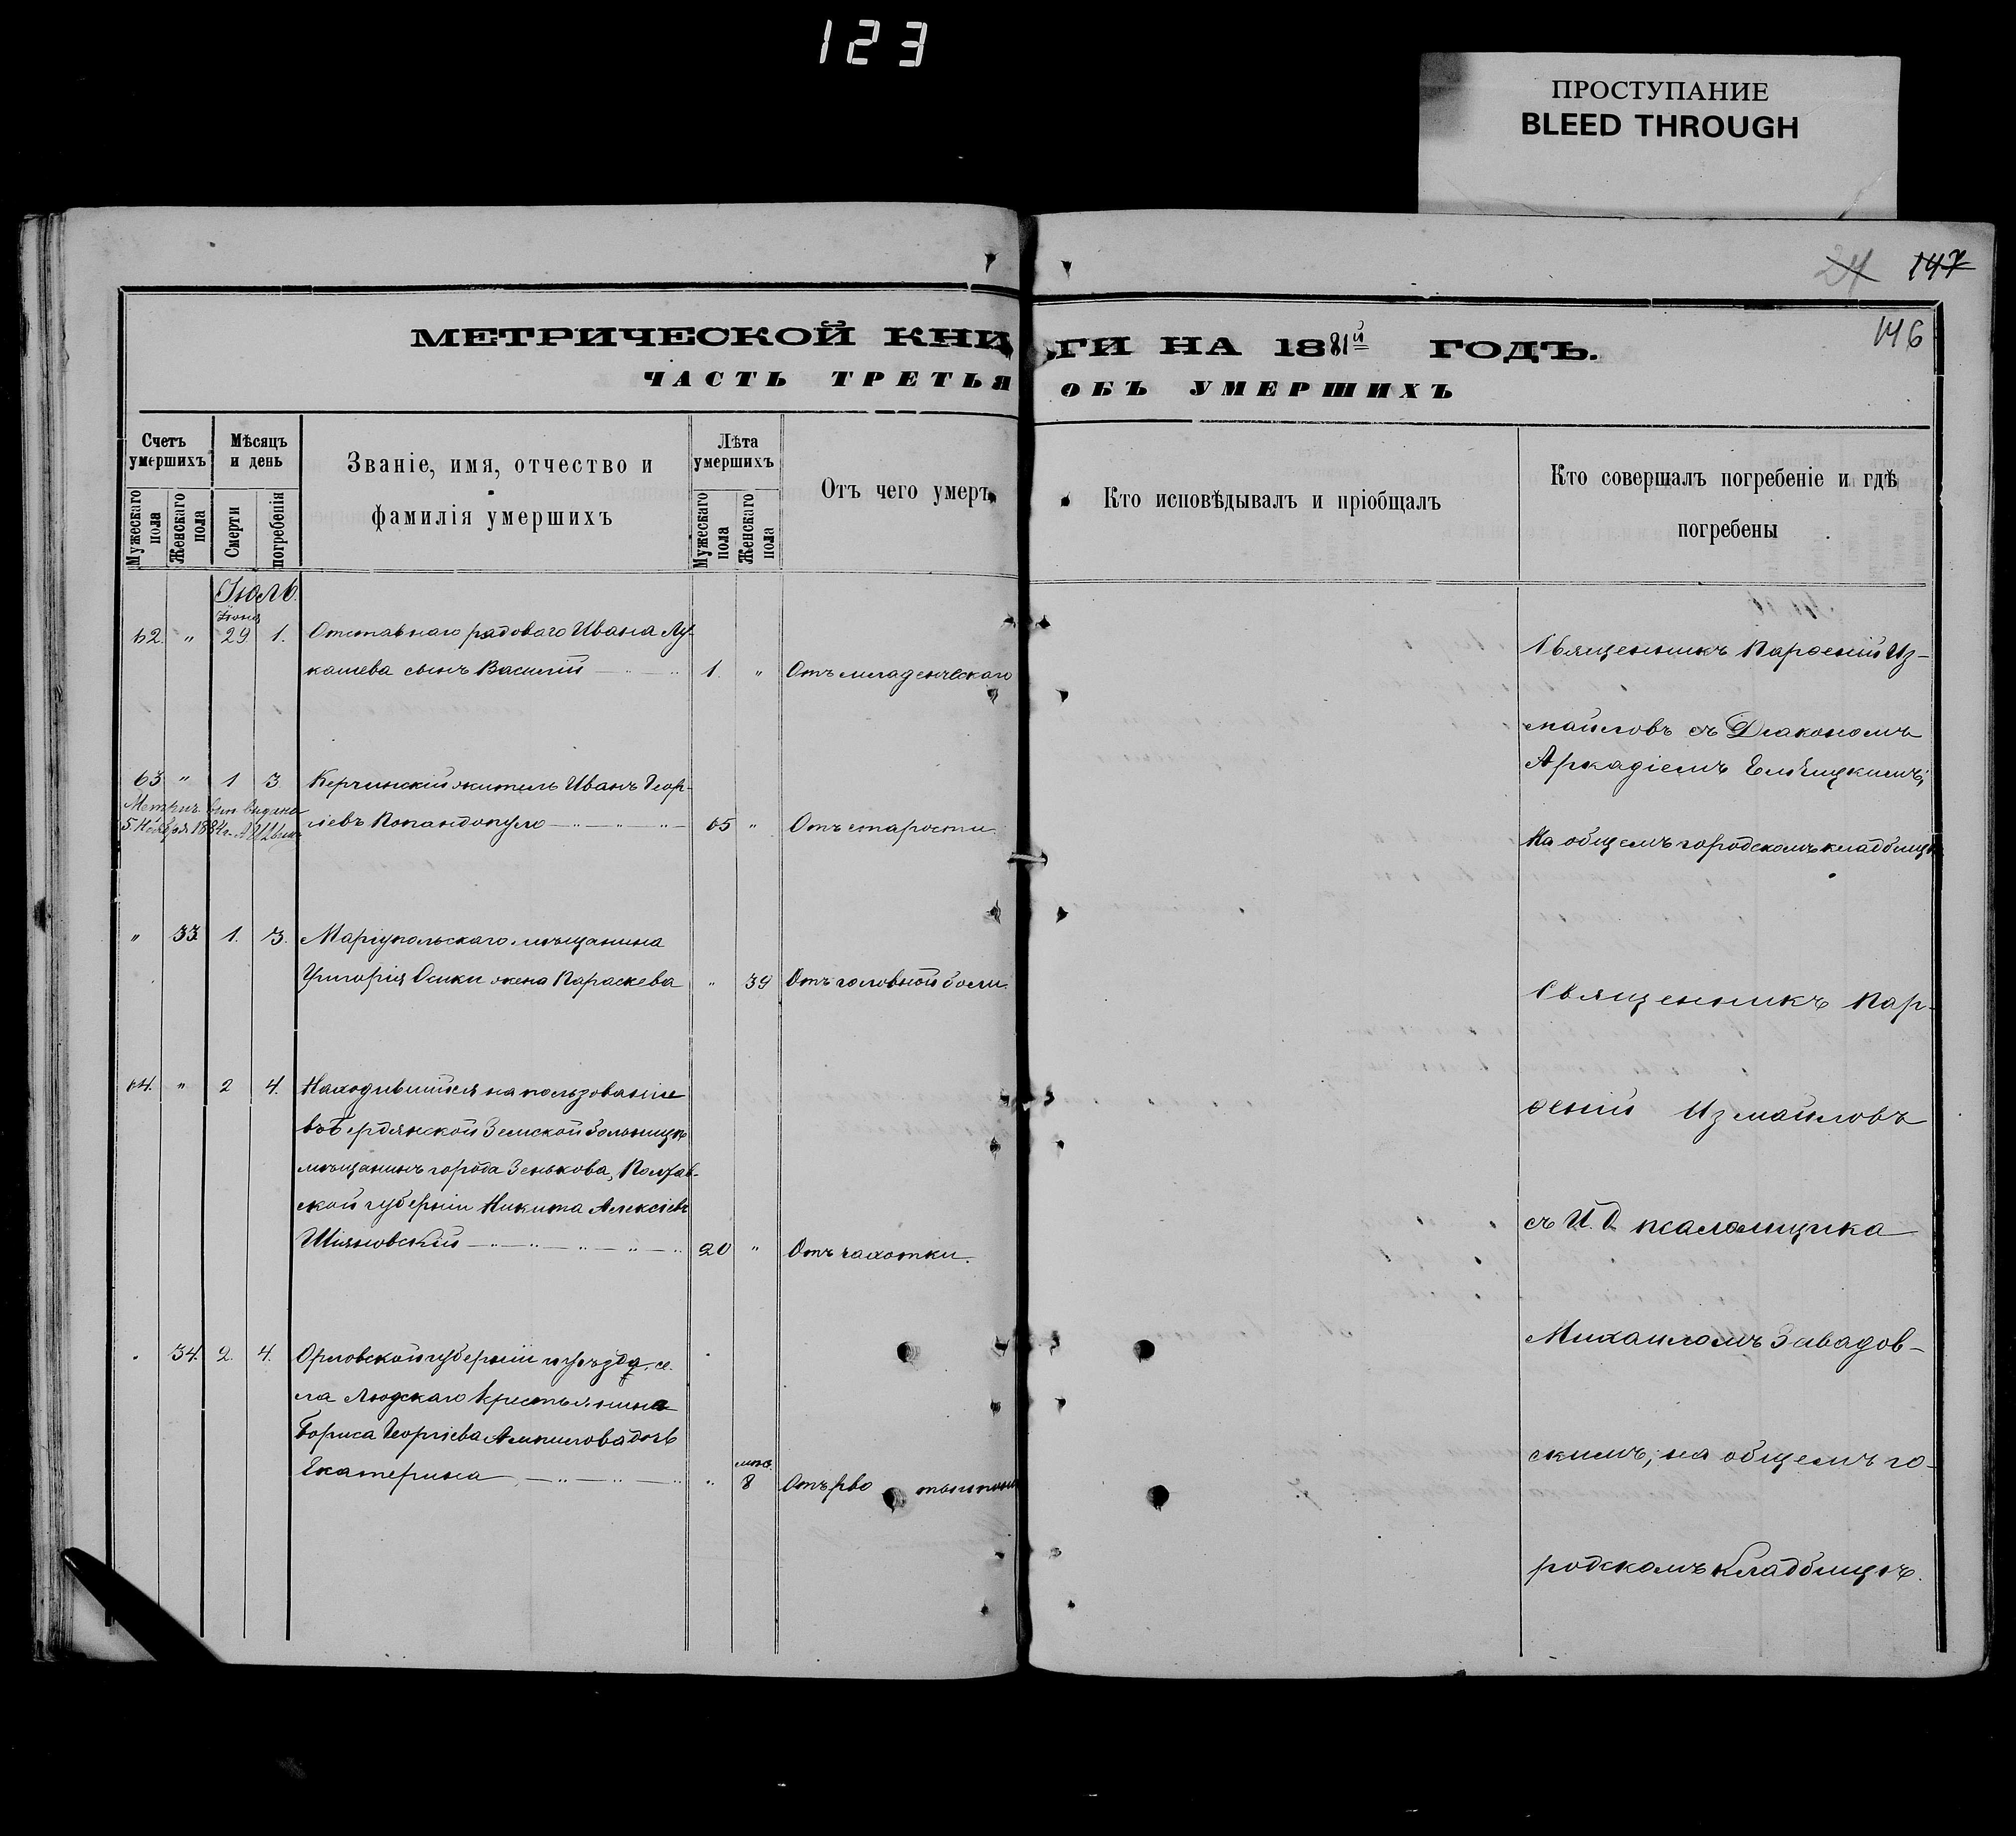 123
ПРОСТУПАНИЕ
BLEED THROUGH
24 147
146
МЕТРИЧЕСКОЙ КНИГИ НА 1881й ГОДЪ.
ЧАСТЬ ТРЕТЬЯ ОБЪ УМЕРШИХЪ
Счетъ умершихъ
Мужескаго пола
Женскаго пола
Мѣсяцъ и день
Смерти
погребенія
Званіе, имя, отчество и
фамилія умершихъ
Лѣта умершихъ
Мужескаго пола
Женскаго пола
Отъ чего умеръ
Кто исповѣдывалъ и пріобщалъ
Кто совершалъ погребеніе и гдѣ
погребены
Іюль.
Іюня
62. " 29 1. Отставнаго рядоваго Ивана Лу-
кашева сынъ Василій 1. " Отъ младенческаго
63. " 1 3 Керчинскій житель Иванъ Геор-
Метрич. вып выдана
5. Ноября 1884г.
гіевъ Попандопуло 65 " Отъ старости.
" 33 1. 3. Маріупольскаго мѣщанина
Григорія Осики жена Параскева " 39 Отъ головной боли.
64. " 2 4. Находившійся на пользованіе
въ Бердянской Земской больницѣ
мѣщанинъ города Зенькова, Полтав-
ской губерніи Никита Алексіевъ
Шіяновскій 20 " Отъ чахотки.
" 34. 2. 4. Орловской губерніи и уѣзда, се-
ла Людскаго крестьянина
Бориса Георгіева Ампилова дочь
Екатерина " мѣс. 8 Отъ рво
Священникъ Парѳеній Из-
маиловъ съ Діакономъ
Аркадіемъ Елѣицкимъ;
На общемъ городскомъ кладбищѣ
Священникъ Пар-
ѳеній Измаиловъ
съ И. д. псаломщика
Михаиломъ Завадов-
скимъ; на общемъ го-
родскомъ кладбищѣ.